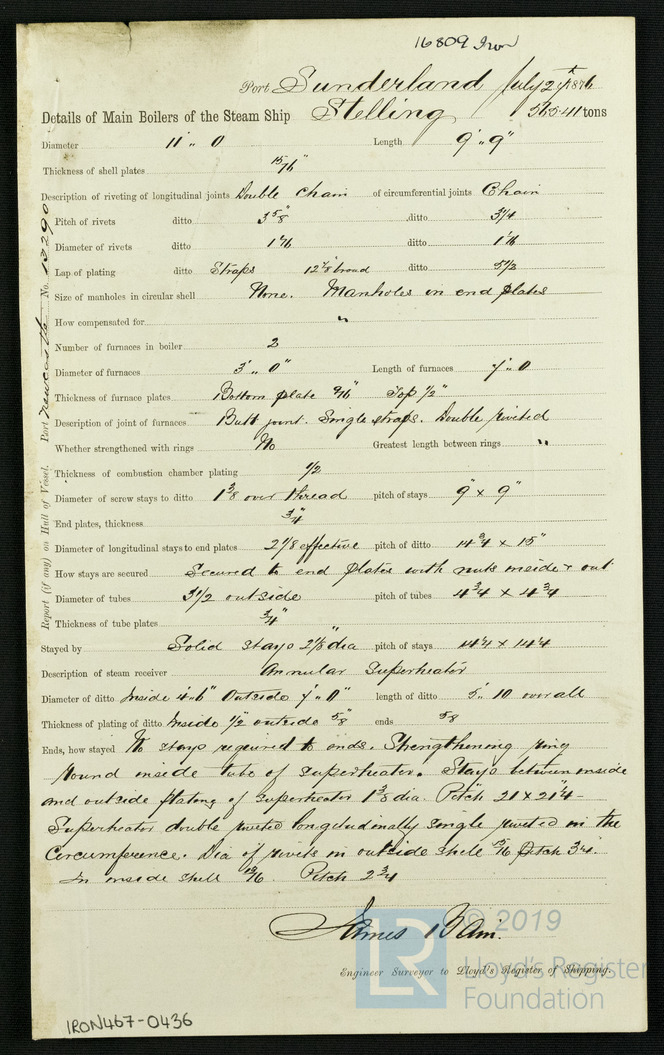 16809 Iron
Port Sunderland July 2 1876
Details of Main Boilers of the Steam Ship Stelling 565.41 tons
Diameter 11' " 0 Length 9' " 9"
Thickness of shell plates 15/16"
Description of riveting of longitudinal joints Double Chain of circumferential joints Chain
Pitch of rivets ditto 3 5/8" ditto 3 1/4
Diameter of rivets ditto 1 1/16 ditto 1 1/16
Lap of plating ditto Straps 12 7/8 broad ditto 5 1/2
Size of manholes in circular shell None. Manholes in end plates
How compensated for "
Number of furnaces in boiler 2
Diameter of furnaces 3' " 0" Length of furnaces 7' " 0
Thickness of furnace plates Bottom plate 9/16" Top 1/2"
Description of joint of furnaces Butt joint. Single straps. Double riveted
Whether strengthened with rings No Greatest length between rings "
Thickness of combustion chamber plating 1/2
Diameter of screw stays to ditto 1 3/8 over thread pitch of stays 9" x 9"
End plates, thickness 3/4"
Diameter of longitudinal stays to end plates 2 1/8 effective pitch of ditto 14 3/4 x 15"
How stays are secured Secured to end plates with nuts inside & out
Diameter of tubes 3 1/2 outside pitch of tubes 4 3/4 x 4 3/4
Thickness of tube plates 3/4"
Stayed by Solid stays 2 1/8" dia pitch of stays 14 1/4 x 14 1/4
Description of steam receiver Annular Superheater
Diameter of ditto Inside 4' " 6" Outside 7' " 0" length of ditto 5' " 10 over all
Thickness of plating of ditto Inside 1/2 outside 5/8" ends 5/8
Ends, how stayed No stays required to ends. Strengthening ring
round inside tube of superheater. Stays between inside
and outside plating of superheater 1 3/8 dia. Pitch 21 x 21 1/4 -
Superheater double riveted longitudinally single riveted in the
Circumference. Dia of rivets in outside shell 15/16 Pitch 3 1/4.
In inside shell 13/16. Pitch 2 3/4
James Bain.
Engineer Surveyor to Lloyd's Register of Shipping.
Report (if any) on Hull of Vessel. Port Newcastle No. 13290
LR © 2019
Lloyd's Register
Foundation
IRON467-0436